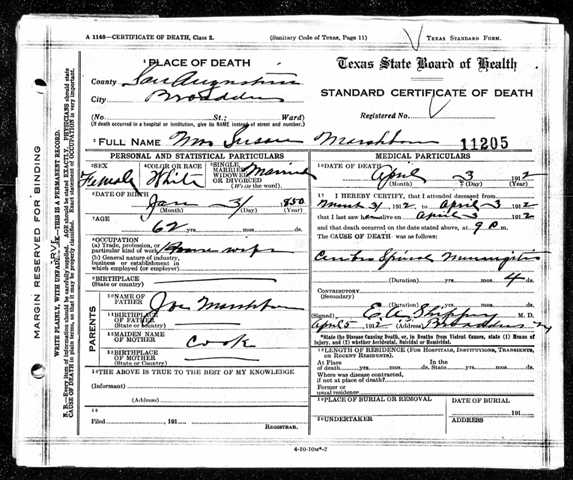 A 1148—CERTIFICATE OF DEATH, Class 2. (Sanitary Code of Texas, Page 11) TEXAS STANDARD FORM.
1 PLACE OF DEATH
County San Augustine
City Broaddus
Texas State Board of Health
STANDARD CERTIFICATE OF DEATH
(No. St.; Ward) Registered No.
(If death occurred in a hospital or institution, give its NAME instead of street and number.)
2 FULL NAME Mrs Susan 11205
PERSONAL AND STATISTICAL PARTICULARS
SEX Female
COLOR OR RACE White
SINGLE MARRIED WIDOWED OR DIVORCED (Write the word). Married
DATE OF BIRTH Jan 31 1850
(Month) (Day) (Year)
AGE 62 yrs. mos. ds.
OCCUPATION
(a) Trade, profession, or particular kind of work House wife
(b) General nature of industry, business or establishment in which employed (or employer)
BIRTHPLACE
(State or country)
PARENTS
NAME OF FATHER Joe
BIRTHPLACE OF FATHER
(State or Country)
MAIDEN NAME OF MOTHER Cook
BIRTHPLACE OF MOTHER
(State or Country)
THE ABOVE IS TRUE TO THE BEST OF MY KNOWLEDGE
(Informant)
(Address)
Filed 191
REGISTRAR.
MEDICAL PARTICULARS
DATE OF DEATH April 3 1912
(Month) (Day) (Year)
I HEREBY CERTIFY, that I attended deceased from
March 31 1912, to April 3 1912
that I last saw alive on April 3 1912
and that death occurred on the date stated above, at 9 P m.
The CAUSE OF DEATH was as follows:
Cerebro Spinal Meningitis
(Duration) yrs. mos. 4 ds.
CONTRIBUTORY
(Secondary)
(Duration) yrs. mos. ds.
(Signed) E. A. M. D.
April 5 1912 (Address) Broaddus
*State the Disease Causing Death, or, in Deaths from Violent Causes, state (1) Means of Injury, and (2) whether Accidental, Suicidal or Homicidal.
LENGTH OF RESIDENCE (FOR HOSPITALS, INSTITUTIONS, TRANSIENTS, OR RECENT RESIDENTS).
At Place of death yrs. mos. ds. State yrs. mos. ds.
Where was disease contracted, if not at place of death?
Former or usual residence
PLACE OF BURIAL OR REMOVAL DATE OF BURIAL
191
UNDERTAKER ADDRESS
4-10-10m*-2
MARGIN RESERVED FOR BINDING